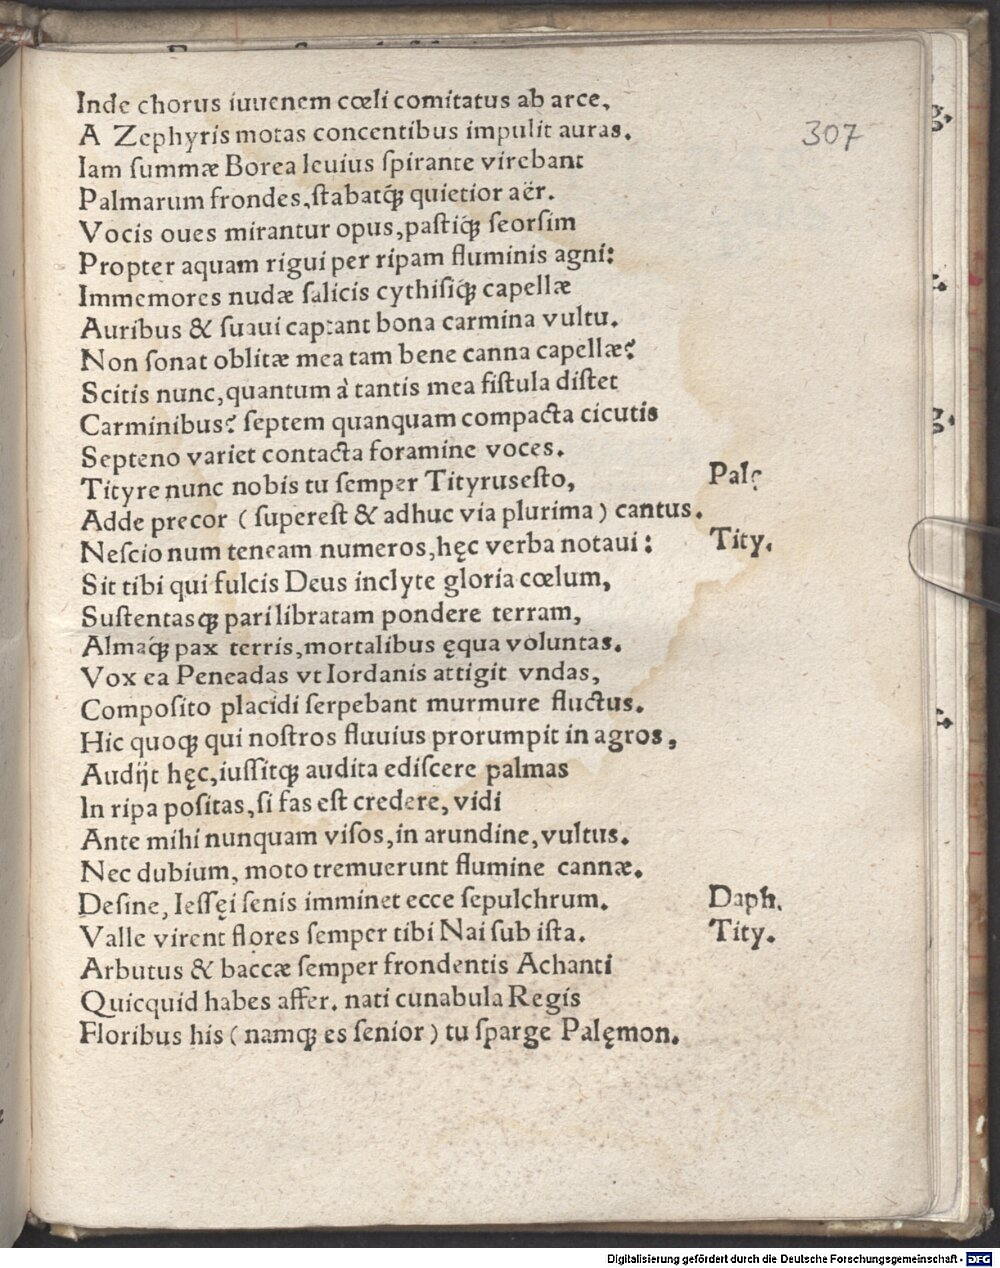 Inde chorus iuuenem cœli comitatus ab arce,
A Zephyris motas concentibus impulit auras.
307
Iam summæ Borea leuius spirante virebant
Palmarum frondes, stabatq́ꝫ quietior aër.
Vocis oues mirantur opus, pastiq́ꝫ seorsim
Propter aquam rigui per ripam fluminis agni:
Immemores nudæ salicis cythisiq́ꝫ capellæ
Auribus & suaui captant bona carmina vultu.
Non sonat oblitæ mea tam bene canna capellæ?
Scitis nunc, quantum à tantis mea fistula distet
Carminibus? septem quanquam compacta cicutis
Septeno variet contacta foramine voces.
Tityre nunc nobis tu semper Tityrusesto, Palę
Adde precor ( superest & adhuc via plurima ) cantus.
Nescio num teneam numeros, hęc verba notaui: Tity.
Sit tibi qui fulcis Deus inclyte gloria cœlum,
Sustentasqꝫ pari libratam pondere terram,
Almaq́ꝫ pax terris, mortalibus ęqua voluntas.
Vox ea Peneadas vt Iordanis attigit vndas,
Composito placidi serpebant murmure fluctus.
Hic quoqꝫ qui nostros fluuius prorumpit in agros,
Audijt hęc, iussitqꝫ audita ediscere palmas
In ripa positas, si fas est credere, vidi
Ante mihi nunquam visos, in arundine, vultus.
Nec dubium, moto tremuerunt flumine cannæ.
Desine, Iessęi senis imminet ecce sepulchrum. Daph.
Valle virent flores semper tibi Nai sub ista. Tity.
Arbutus & baccæ semper frondentis Achanti
Quicquid habes affer. nati cunabula Regis
Floribus his ( namqꝫ es senior ) tu sparge Palęmon.
Digitalisierung gefördert durch die Deutsche Forschungsgemeinschaft - DFG